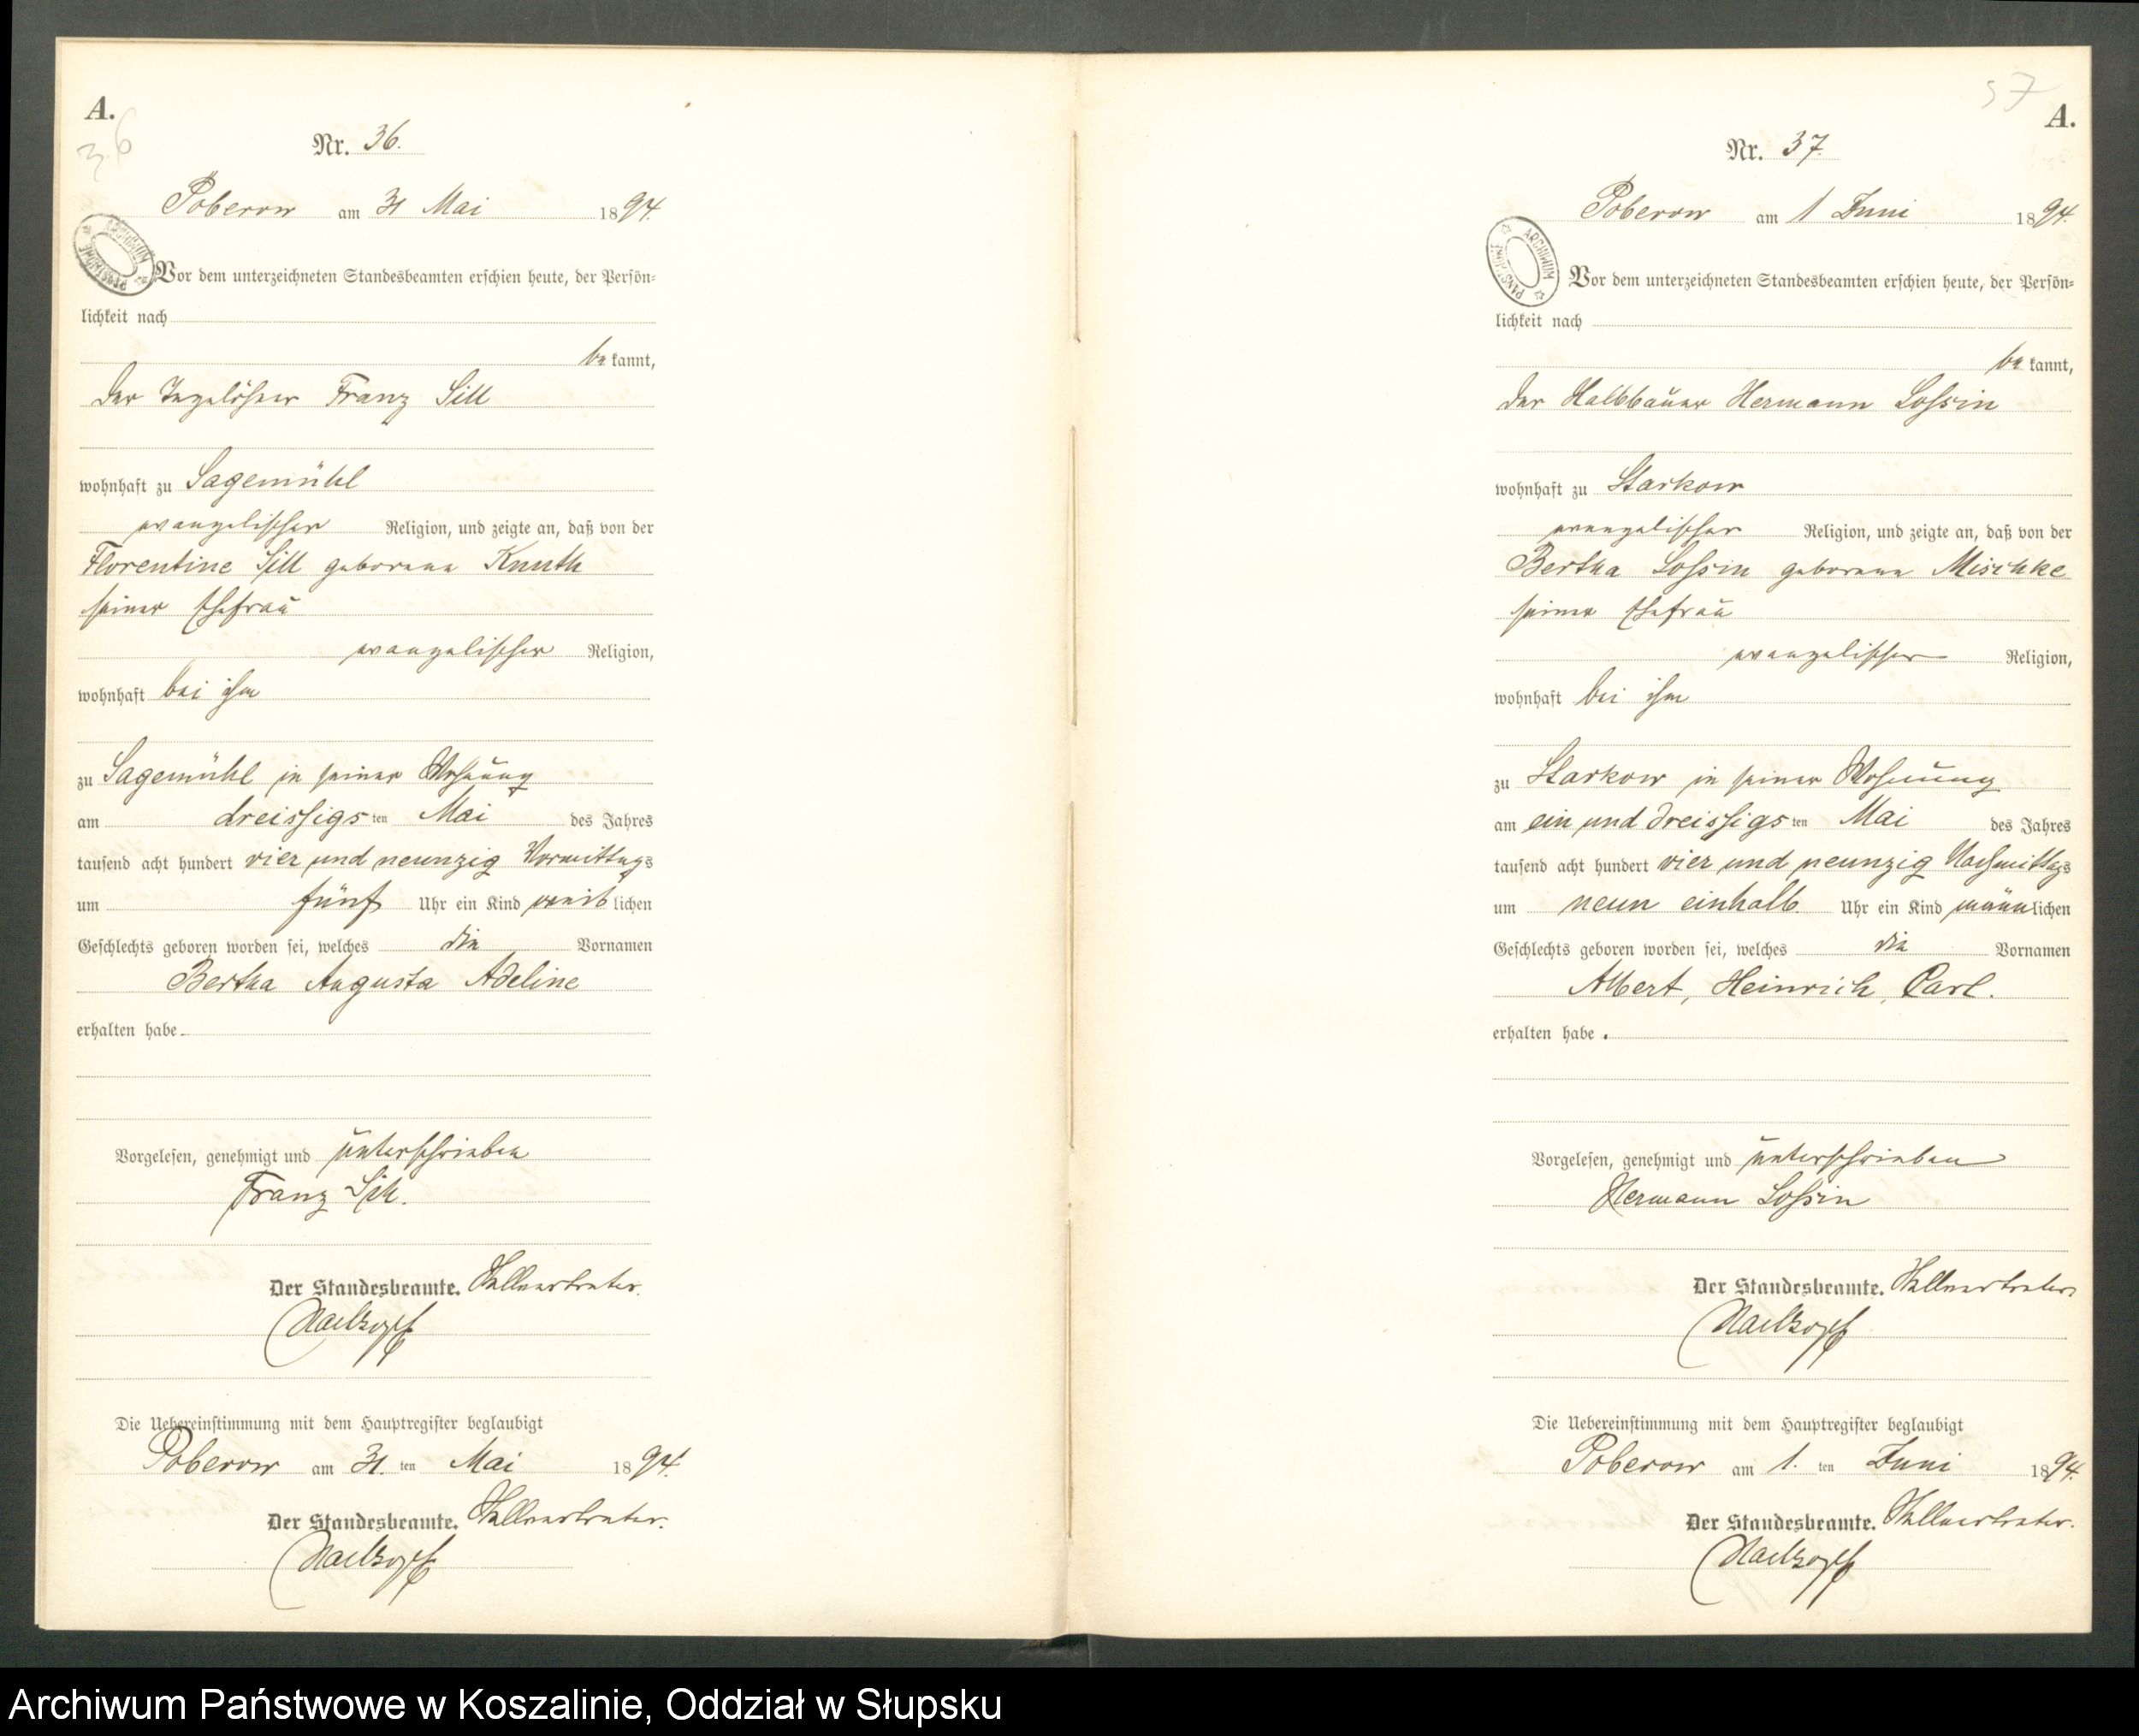 A.
36
Nr. 36.
Poberow am 31 Mai 1894.
ARCHIWUM
Vor dem unterzeichneten Standesbeamten erschien heute, der Persön-
lichkeit nach
bekannt,
der Tagelöhner Franz Sill
wohnhaft zu Sagemühl
evangelischer Religion, und zeigte an, daß von der
Florentine Sill geborene Knuth
seiner Ehefrau
evangelischer Religion,
wohnhaft bei ihm
zu Sagemühl in seiner Wohnung
am dreissigsten Mai des Jahres
tausend acht hundert vier und neunzig Vormittags
um fünf Uhr ein Kind weiblichen
Geschlechts geboren worden sei, welches die Vornamen
Bertha Augusta Adeline
erhalten habe
Vorgelesen, genehmigt und unterschrieben
Franz Sill.
Der Standesbeamte. Stellvertreter.
Die Uebereinstimmung mit dem Hauptregister beglaubigt
Poberow am 31. ten Mai 1894.
Der Standesbeamte. Stellvertreter.
37
A.
Nr. 37.
Poberow am 1 Juni 1894.
ARCHIWUM PAŃSTWOWE
Vor dem unterzeichneten Standesbeamten erschien heute, der Persön-
lichkeit nach
bekannt,
der Halbbauer Hermann Lossin
wohnhaft zu Starkow
evangelischer Religion, und zeigte an, daß von der
Bertha Lossin geborene Mischke
seiner Ehefrau
evangelischer Religion,
wohnhaft bei ihm
zu Starkow in seiner Wohnung
am ein und dreissigsten Mai des Jahres
tausend acht hundert vier und neunzig Nachmittags
um neun einhalb Uhr ein Kind männlichen
Geschlechts geboren worden sei, welches die Vornamen
Albert, Heinrich, Carl.
erhalten habe.
Vorgelesen, genehmigt und unterschrieben
Hermann Lossin
Der Standesbeamte. Stellvertreter.
Die Uebereinstimmung mit dem Hauptregister beglaubigt
Poberow am 1. ten Juni 1894.
Der Standesbeamte. Stellvertreter.
Archiwum Państwowe w Koszalinie, Oddział w Słupsku